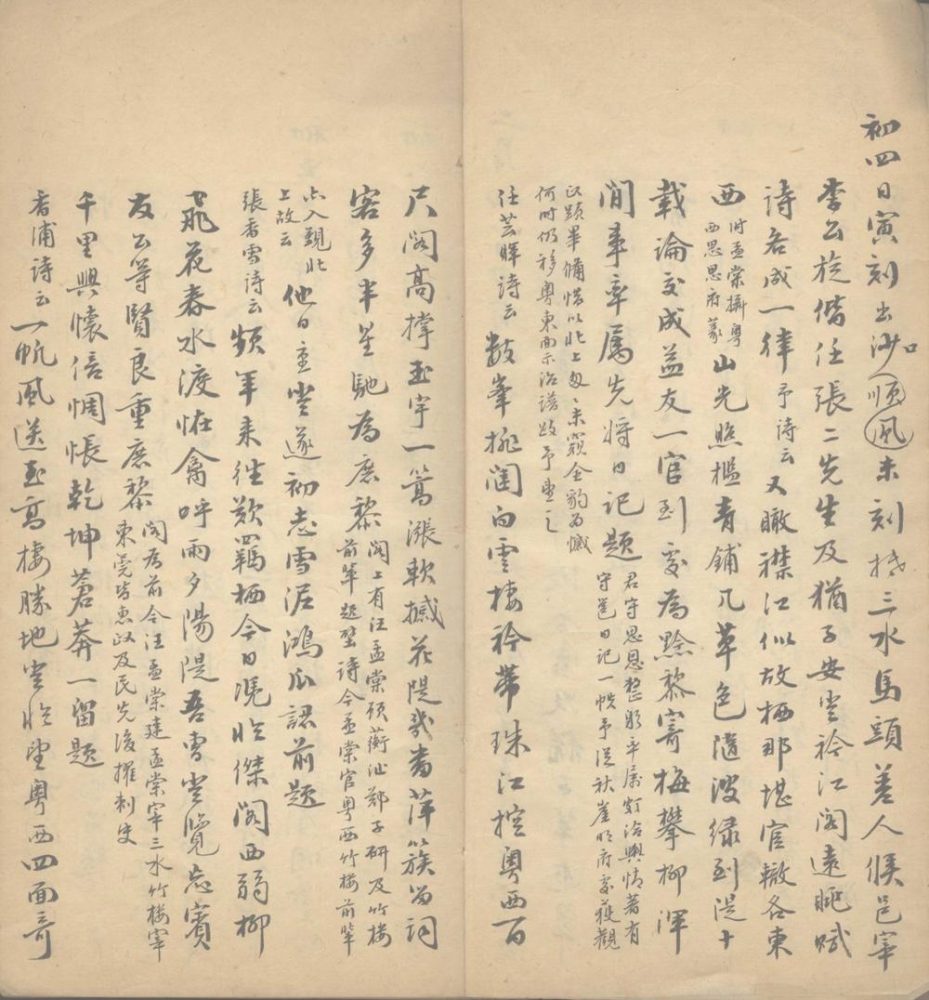 初四日寅刻出沙口順風未刻抵三水馬頭差人候邑宰
李公旋偕任張二先生及猶子安登衿江閣遠眺賦
詩各成一律予詩云又瞰襟江似故栖那堪官轍各東
西時孟棠攝粵西思恩府篆山光照檻青鋪几草色隨波綠到湜十
載論交成益友一官到處為黔黎寄梅攀柳渾
閒事率屬先將日記題君守思恩整躬率屬洽輿情著有守邕日記一帙予從秋崖明府處獲觀
以題畢備惜以北上匆匆未窺全豹為憾
何時仍移粵東面示治譜跂予望之
任芸暉詩云數峯排闥白雲棲衿帶珠江控粵西百
尺閣高撐玉宇一篙漲軟撼花隄幾番萍簇留詞
客多半星馳為庶黎閣上有汪孟棠顧蘅沚鄭子研及竹樓前輩題壁詩今孟棠官粵西竹樓前輩
亦入覲北上故云他日重登遂初志雪泥鴻爪認前題
張香雪詩云頻年來往歎羈栖今日凭臨傑閣西弱柳
飛花春水渡怪禽呼雨夕陽隄吾曹登覽忘賓
友公等賢良重庶黎閣為前令汪孟棠建孟棠宰三水竹樓宰東莞皆惠政及民先後擢刺史
千里興懷倍惆悵乾坤蒼莽一留題
香浦詩云一帆風送至高樓勝地登臨望粵西四面奇